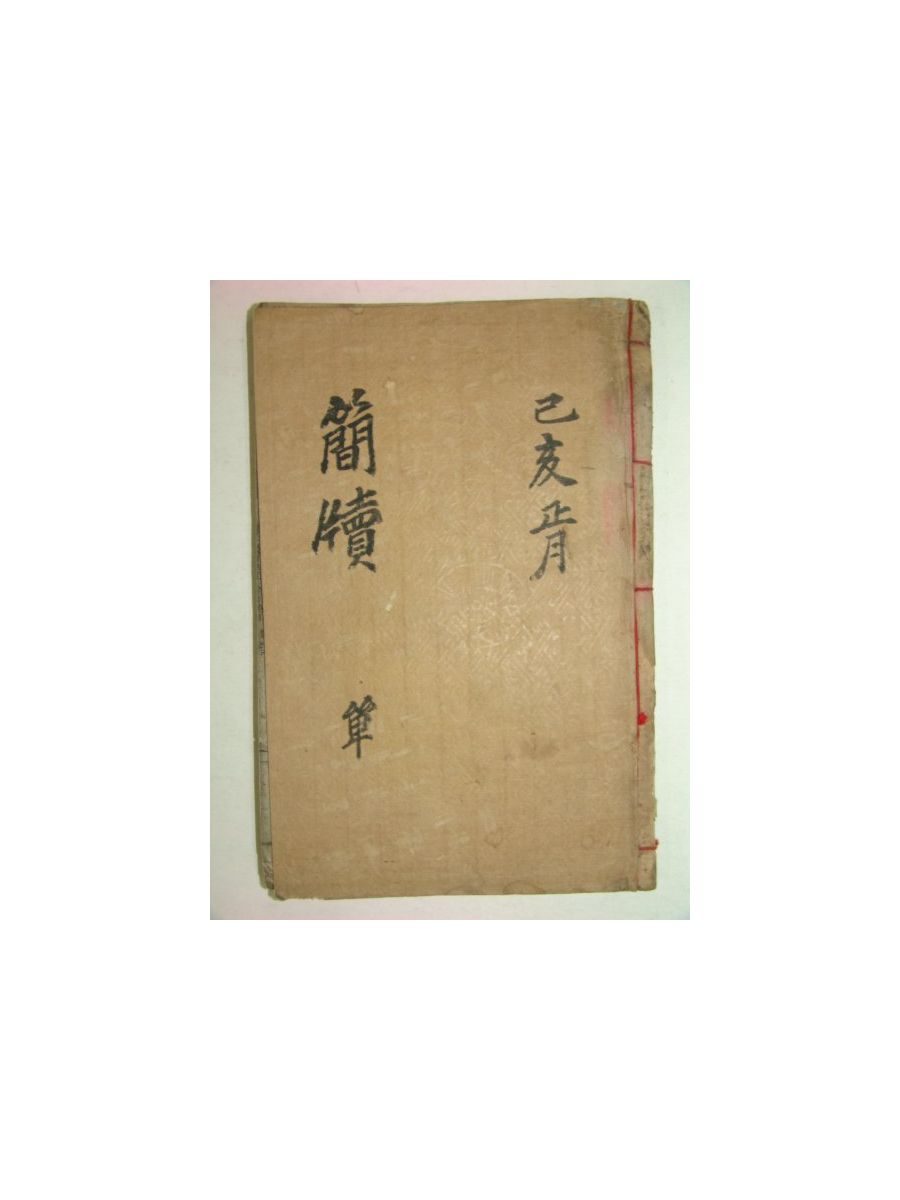 己亥正月
簡牘 單